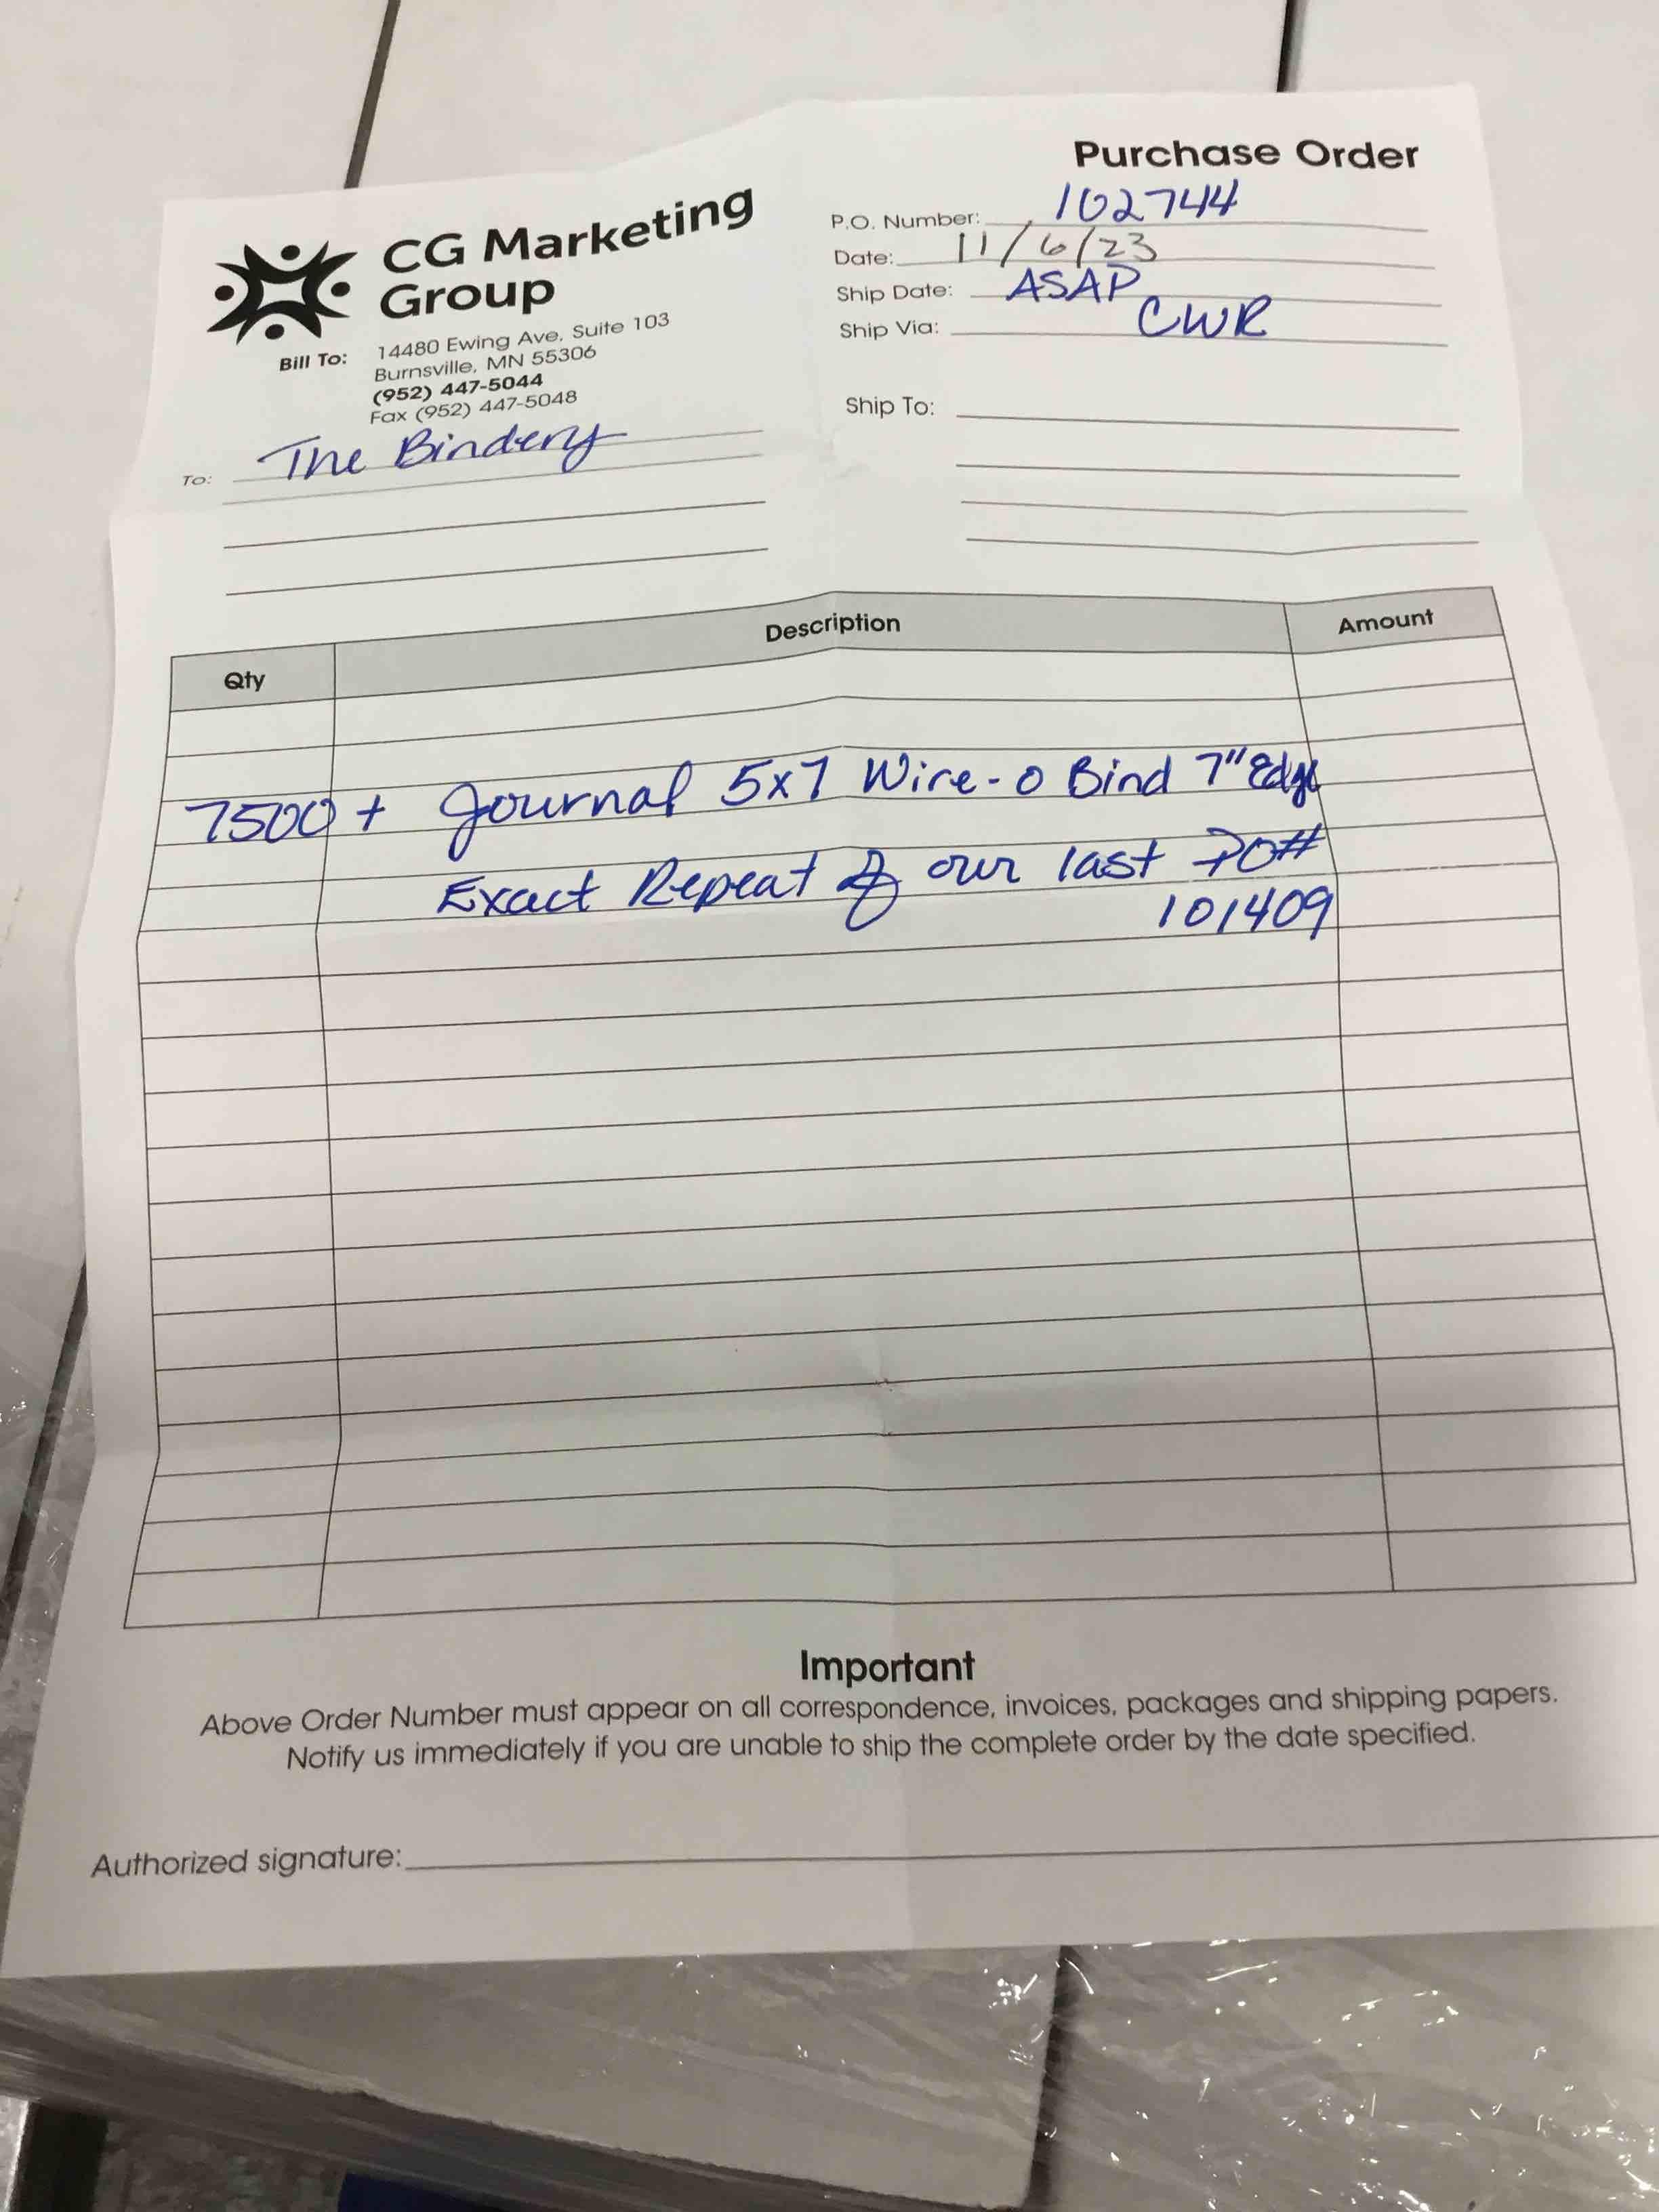 Purchase Order
CG Marketing
Group
Bill To: 14480 Ewing Ave, Suite 103
Burnsville, MN 55306
(952) 447-5044
Fax (952) 447-5048
To: The Bindery
P.O. Number: 102744
Date: 11/6/23
Ship Date: ASAP
Ship Via: CWR
Ship To:
Qty Description Amount
7500+ Journal 5x7 Wire-o Bind 7" Edge
Exact Repeat of our last PO#
101409
Important
Above Order Number must appear on all correspondence, invoices, packages and shipping papers.
Notify us immediately if you are unable to ship the complete order by the date specified.
Authorized signature: